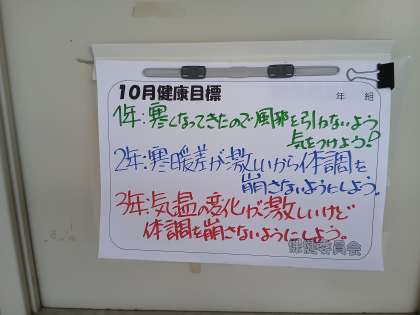 10月健康目標
年 組
1年:寒くなってきたので風邪を引かないよう
気をつけよう!
2年:寒暖差が激しいから体調を
崩さないようにしよう。
3年:気温の変化が激しいけど
体調を崩さないようにしよう。
保健委員会